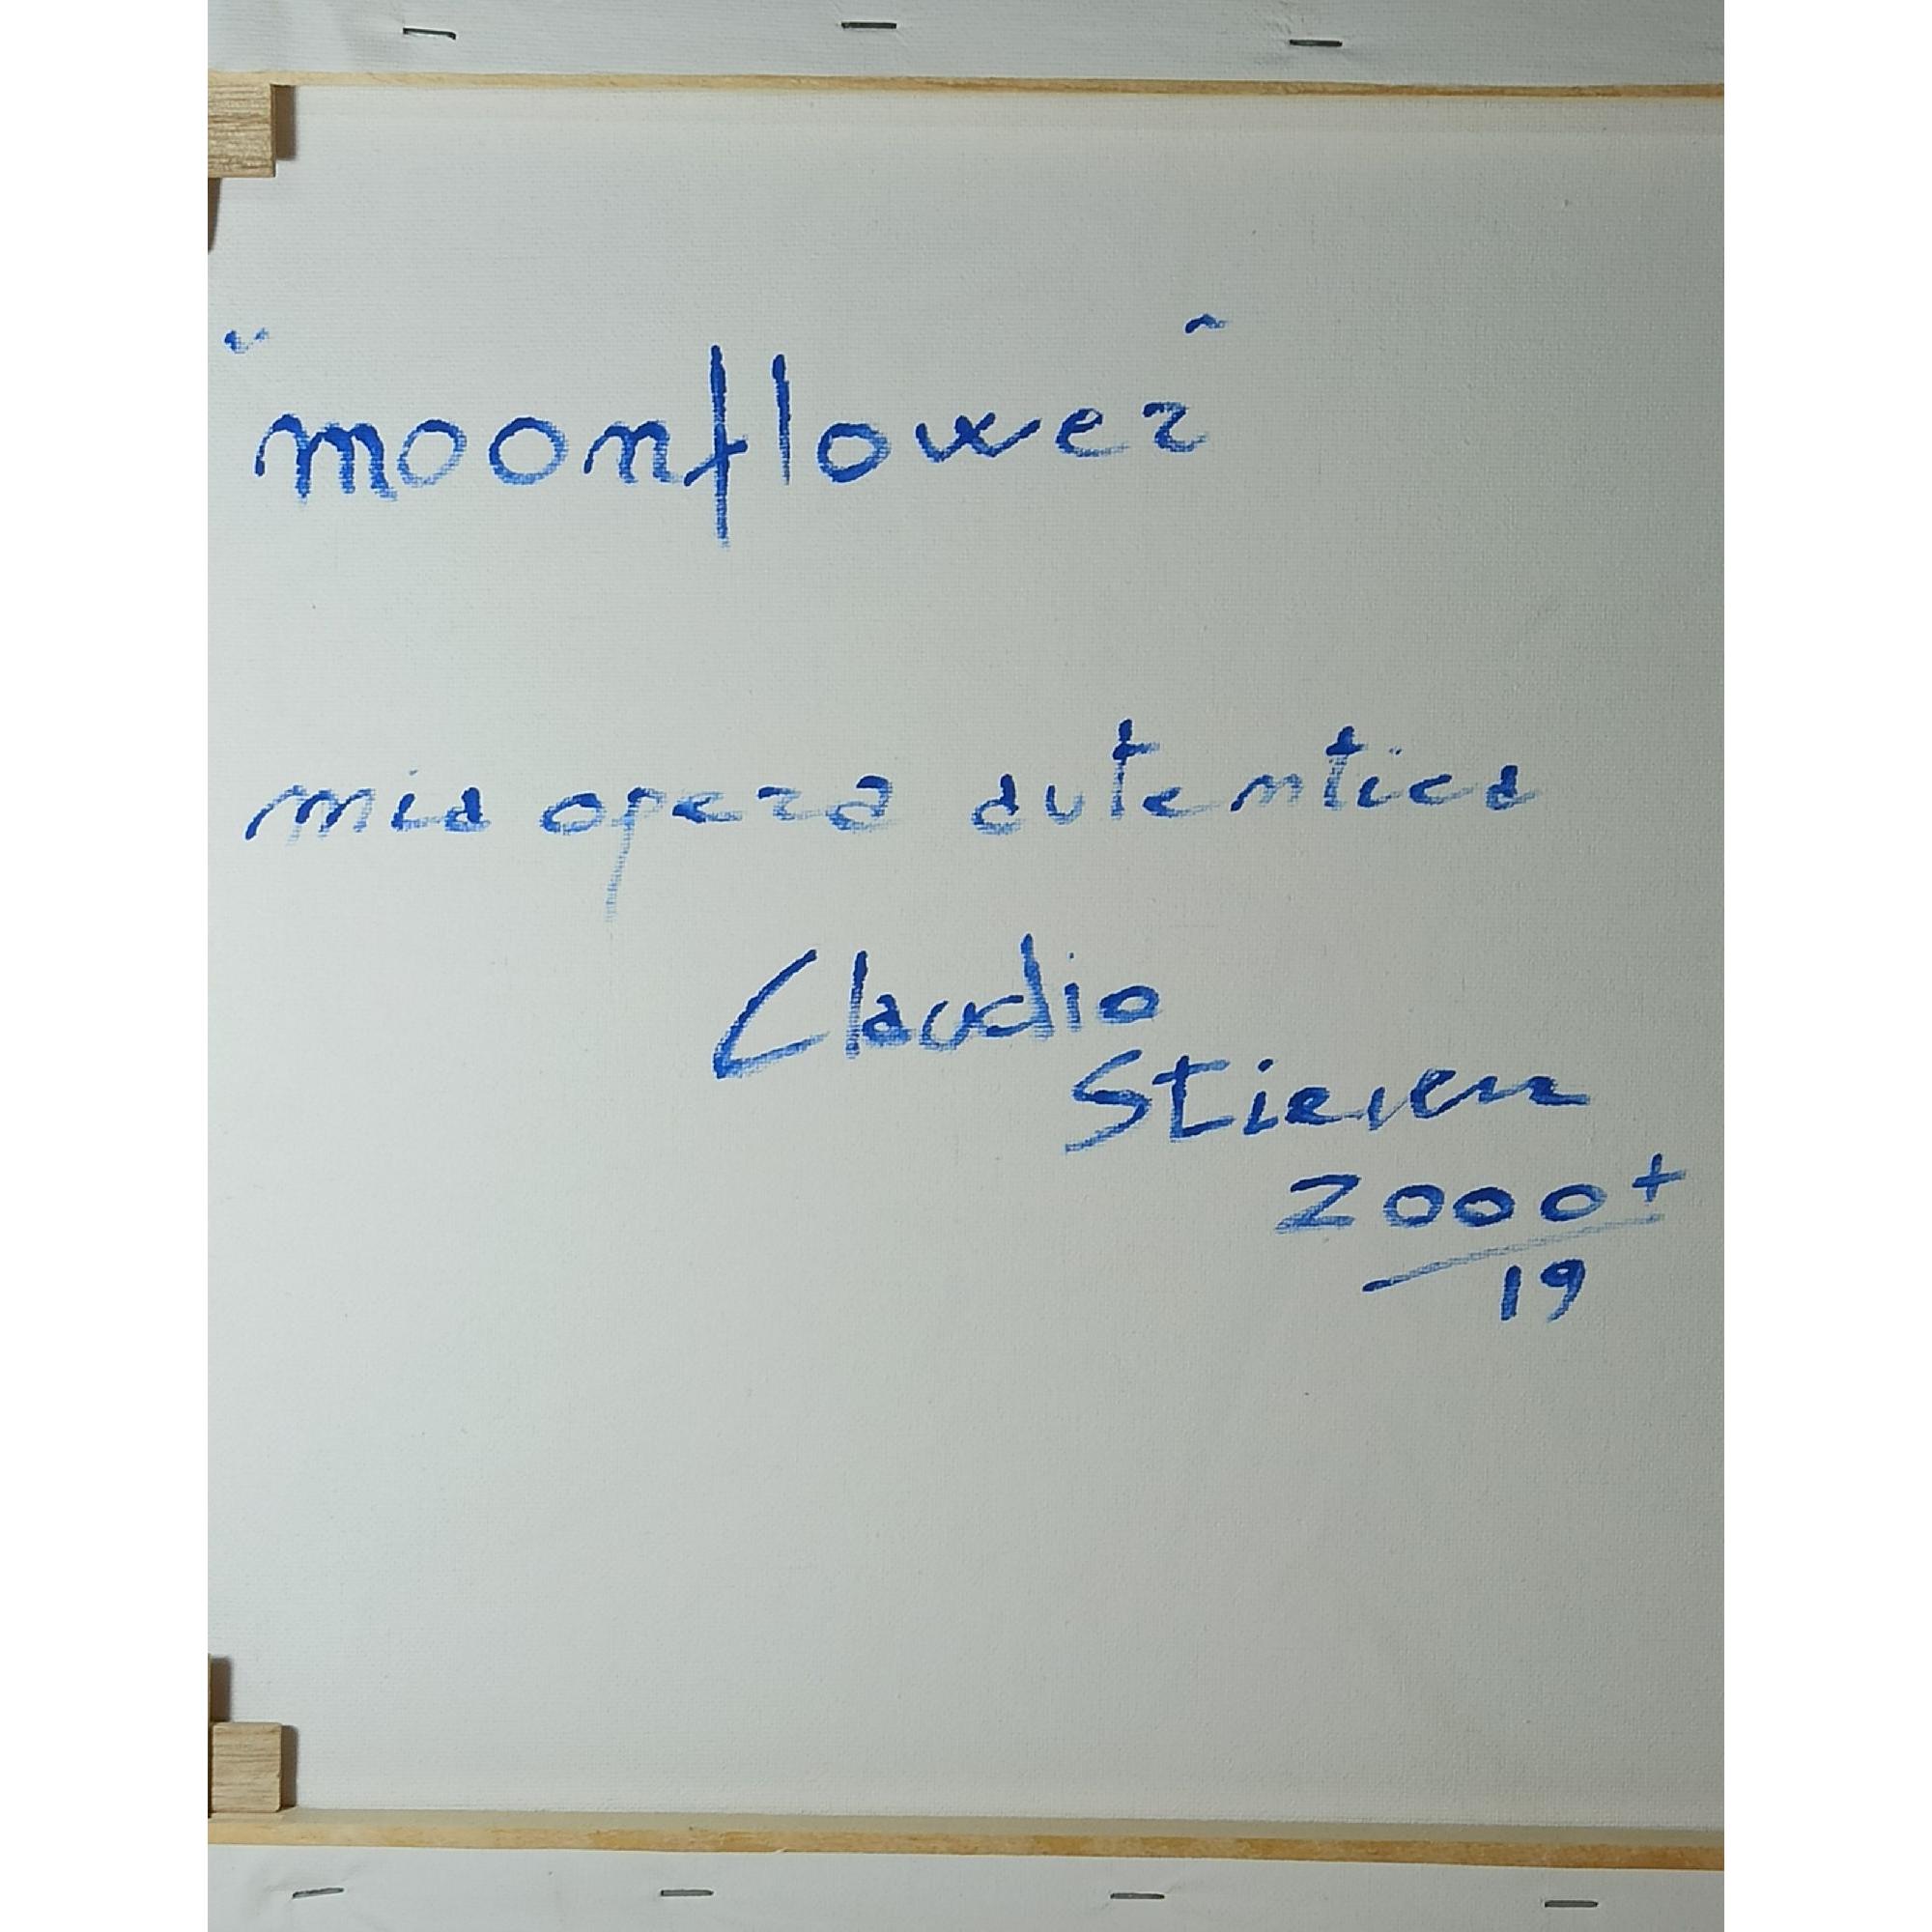 "moonflower"
mia opera autentica
Claudio
2000+
19